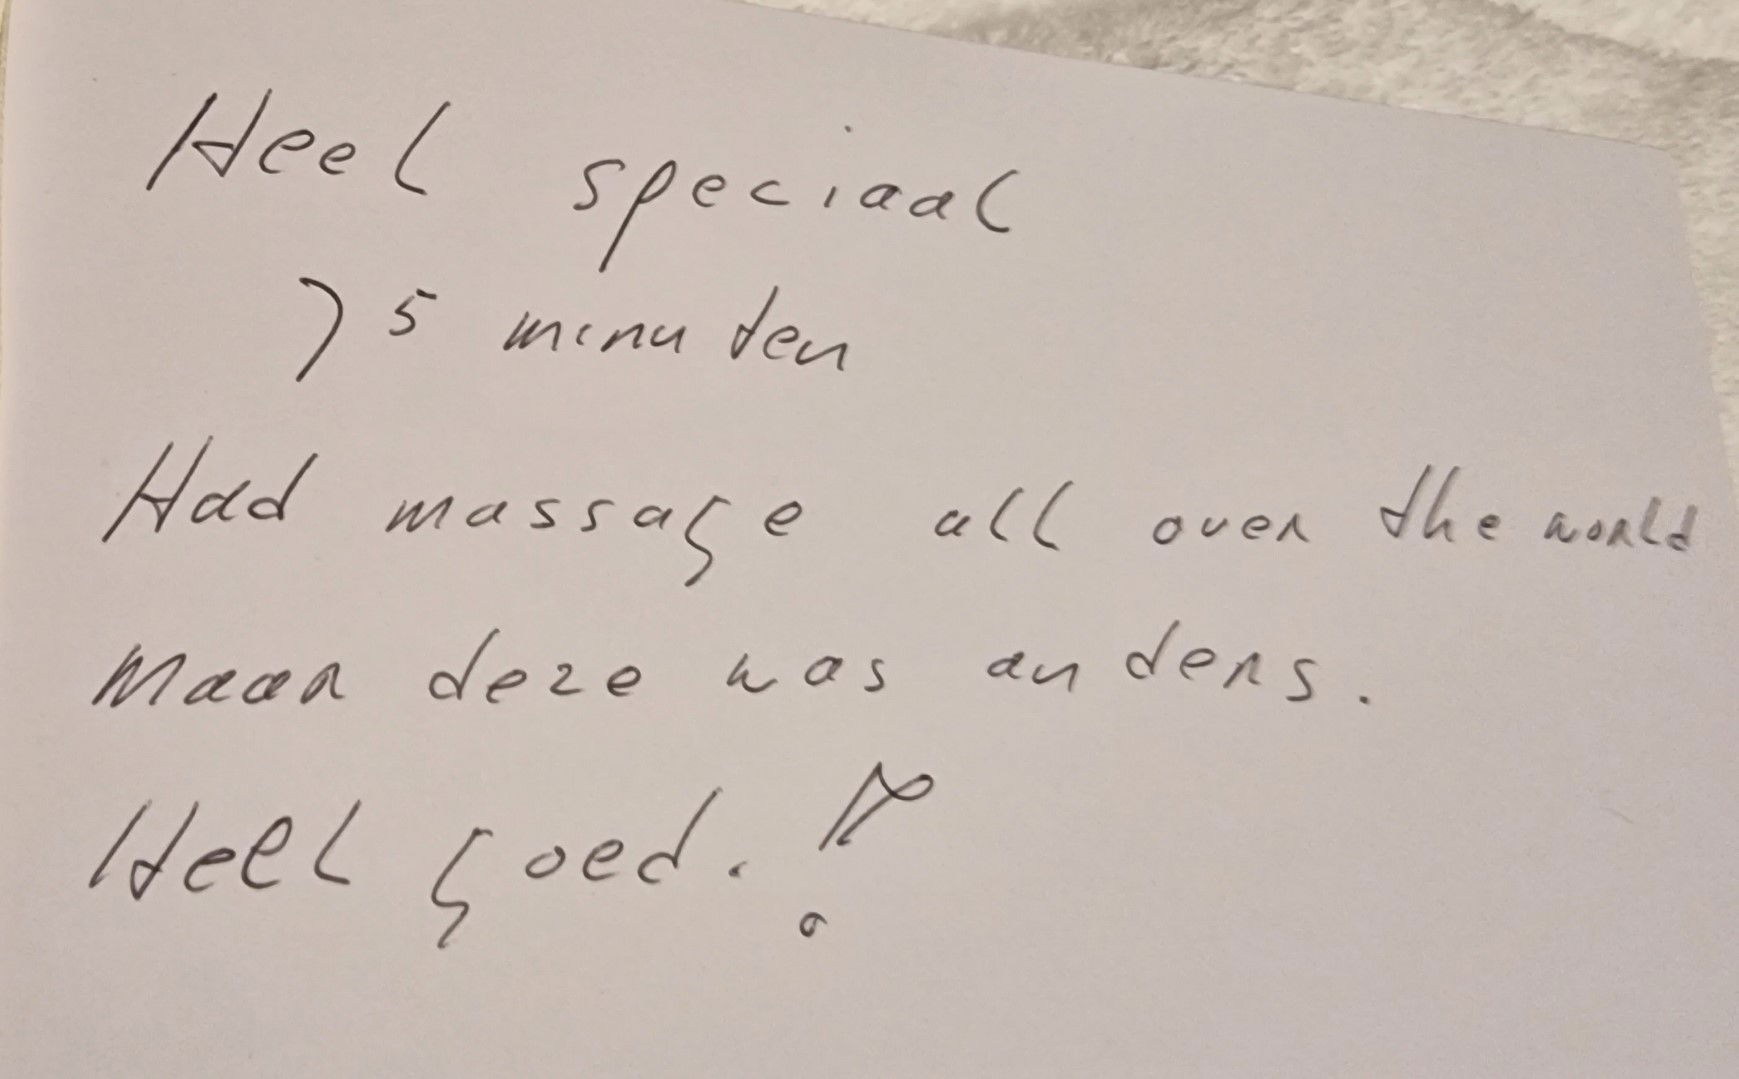 Heel speciaal
75 minuten
Had massage all over the world
maar deze was anders.
Heel goed. !